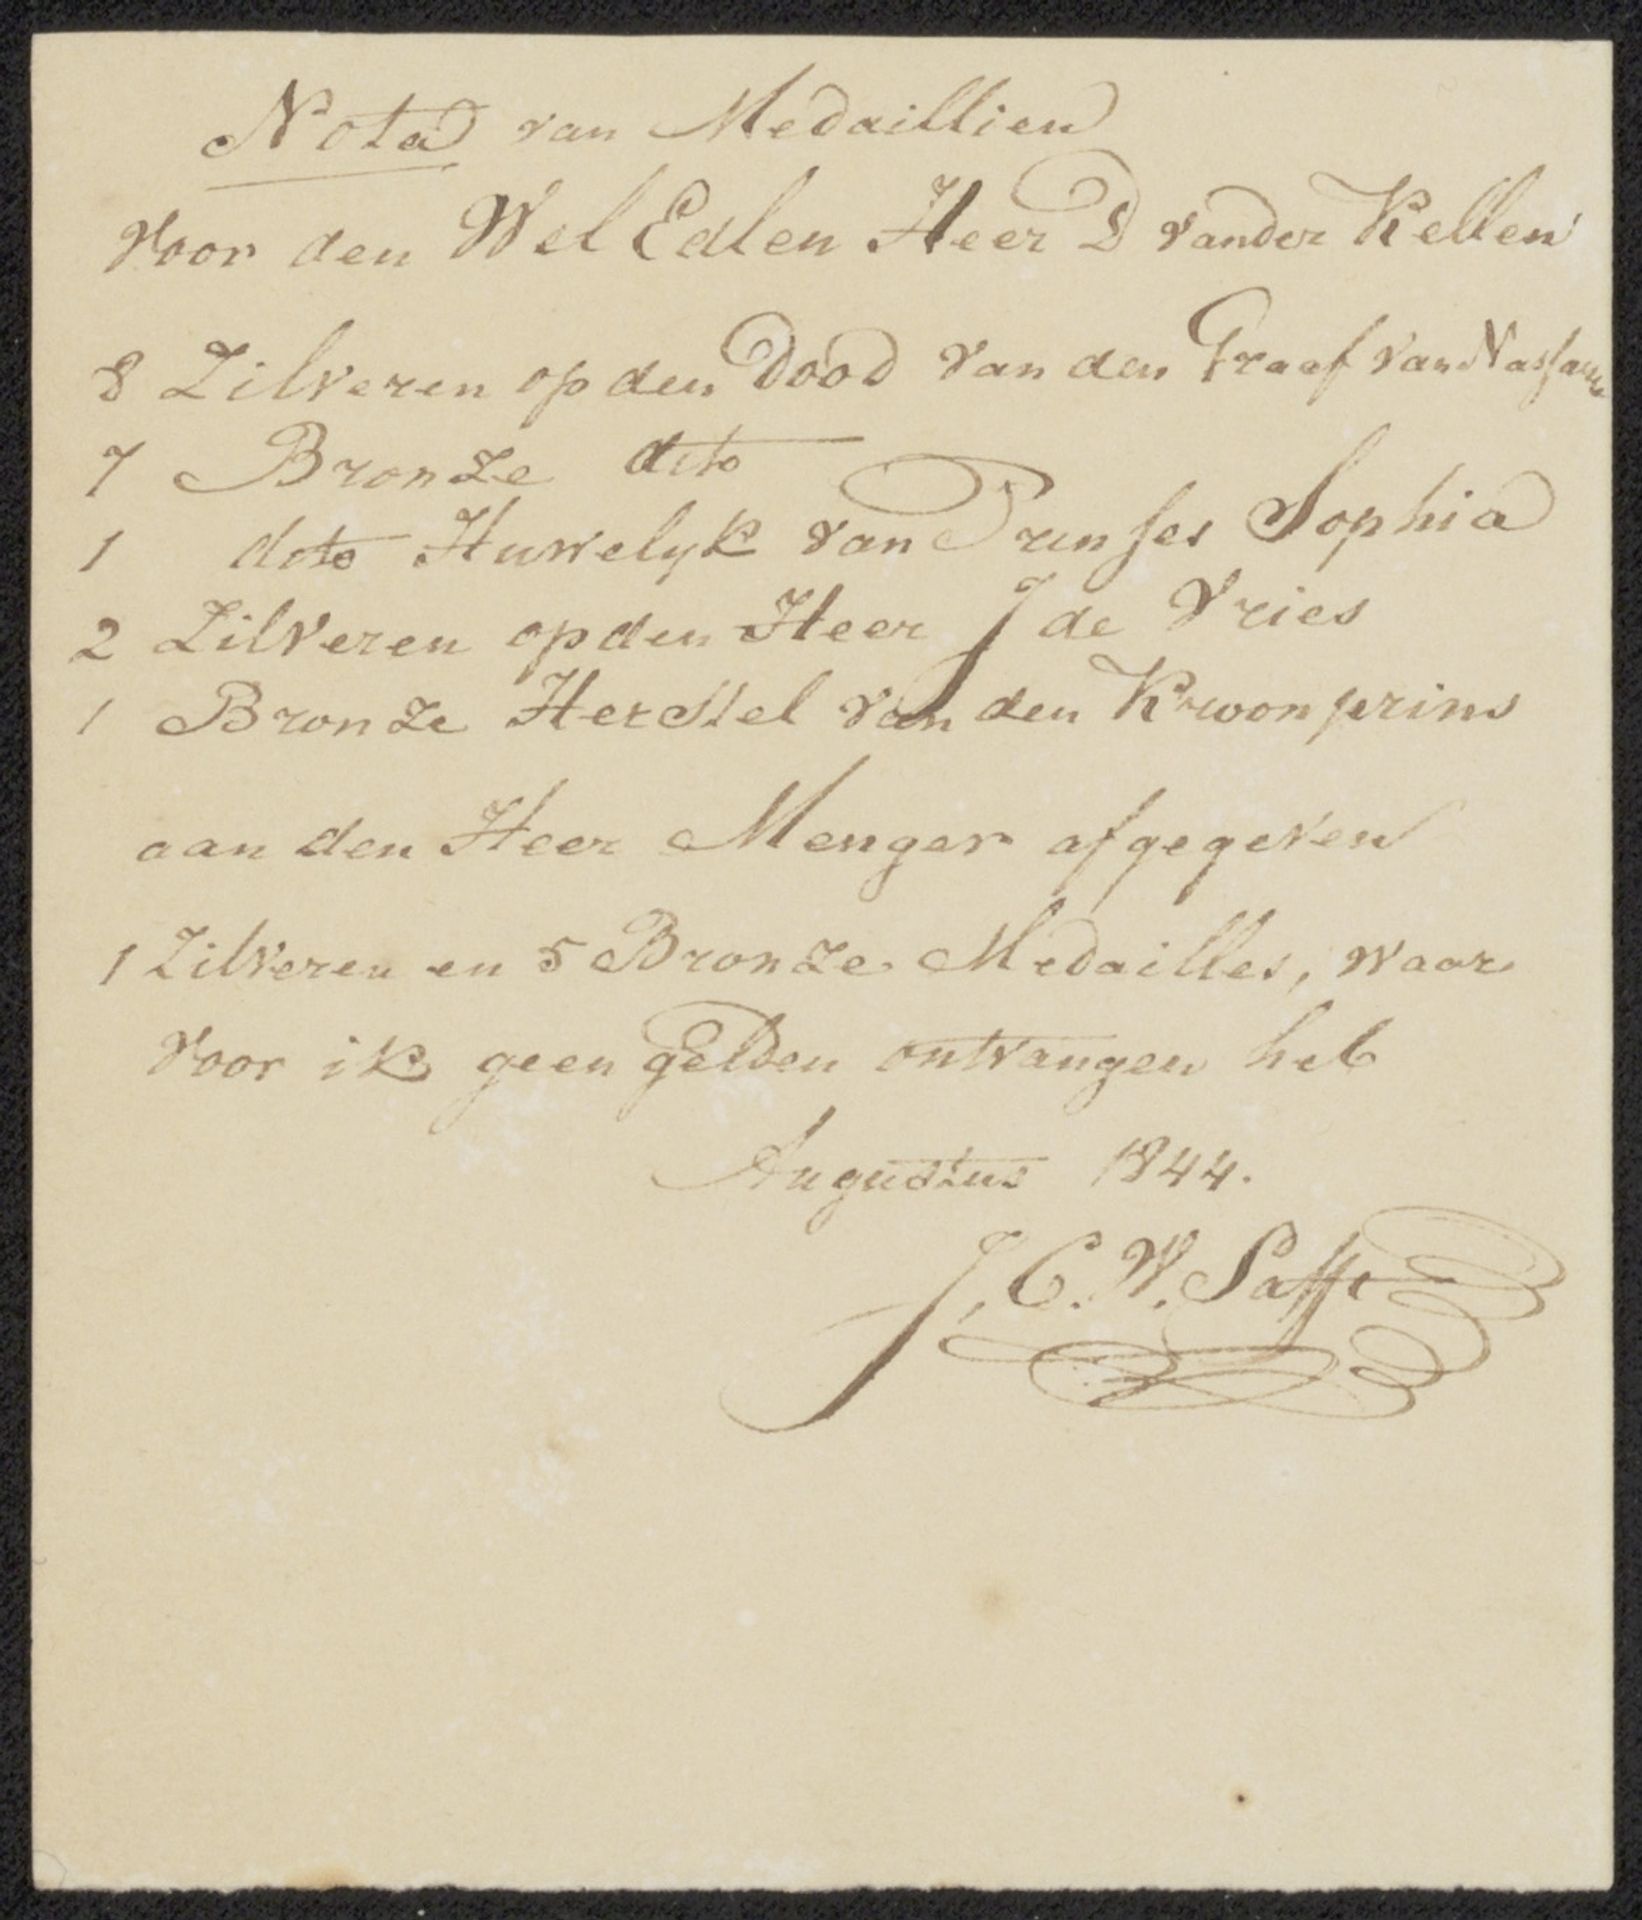 Nota van Medaillien
Voor den Wel Edlen Heer D vander Kellen
8 Zilveren op den Dood van den Graaf van Nassau
7 Bronze dito
1 dito Huwelyk van Prinses Sophia
2 Zilveren op den Heer J de Vries
1 Bronze Herstel van den Kroonprins
aan den Heer Menger afgegeven
1 Zilveren en 5 Bronze Medailles, waar
voor ik geen gelden ontvangen heb
Augustus 1844.
J. C. W. Sasse